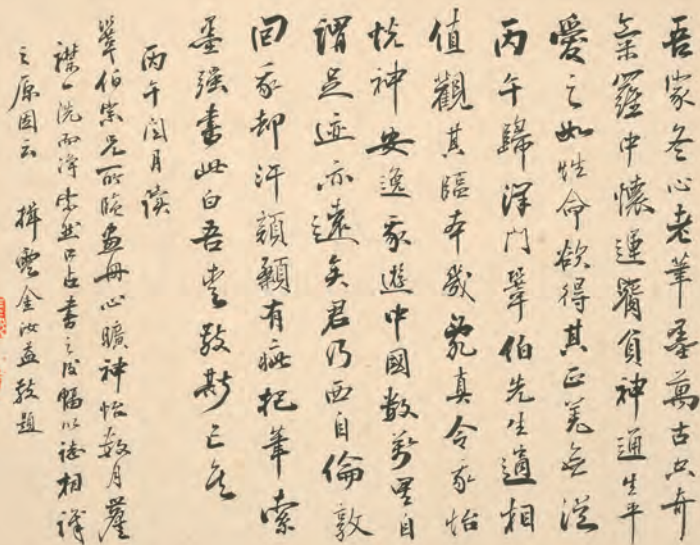 吾家冬心老筆墨萬古出奇
氣羅中懷運獨負神通生平
愛之如性命欲得其正羌無從
丙午歸澤門肇伯先生適相
值觀其臨本幾亂真令我怡
悅神安逸我遊中國數萬里自
謂足迹亦遠矣君乃西自倫敦
回我却汗顏顏有泚把筆索
墨強書此白吾老敬斯已矣
丙午閏月讀
肇伯宗兄所臨畫冊心曠神怡數月塵
襟一洗而淨率然口占書之後幅以誌相識
之原因云 攑雲金汝益敬題